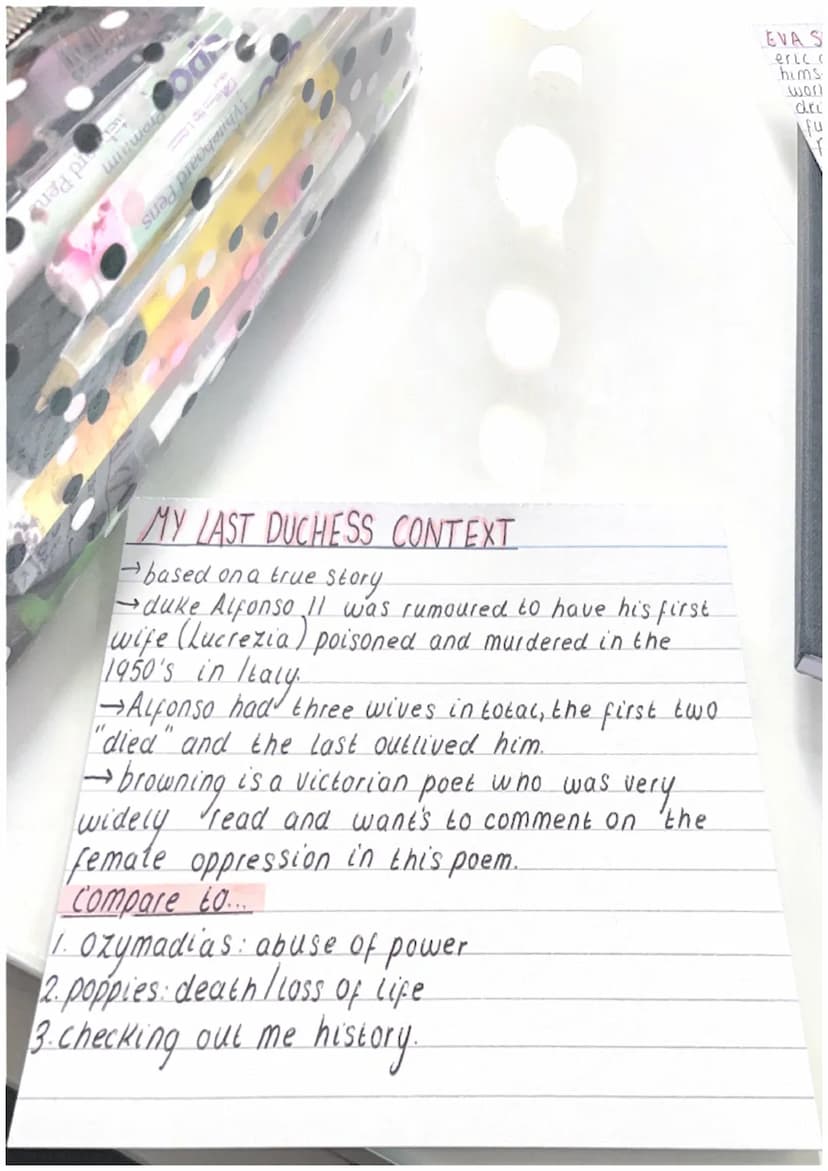 EVA S
eric
hims
worl
dri
fu
Whiteboard Pens
Premium
MY LAST DUCHESS CONTEXT
→based on a true story
→duke Alfonso II was rumoured to have his first
wife (Lucrezia) poisoned and murdered in the
1950's in Italy.
→Alfonso had three wives in total, the first two
"died" and the last outlived him.
→browning is a victorian poet who was very
widely read and want's to comment on the
female oppression in this poem.
compare to...
1. Ozymadias: abuse of power
2. poppies: death/loss of life
3. checking out me history.